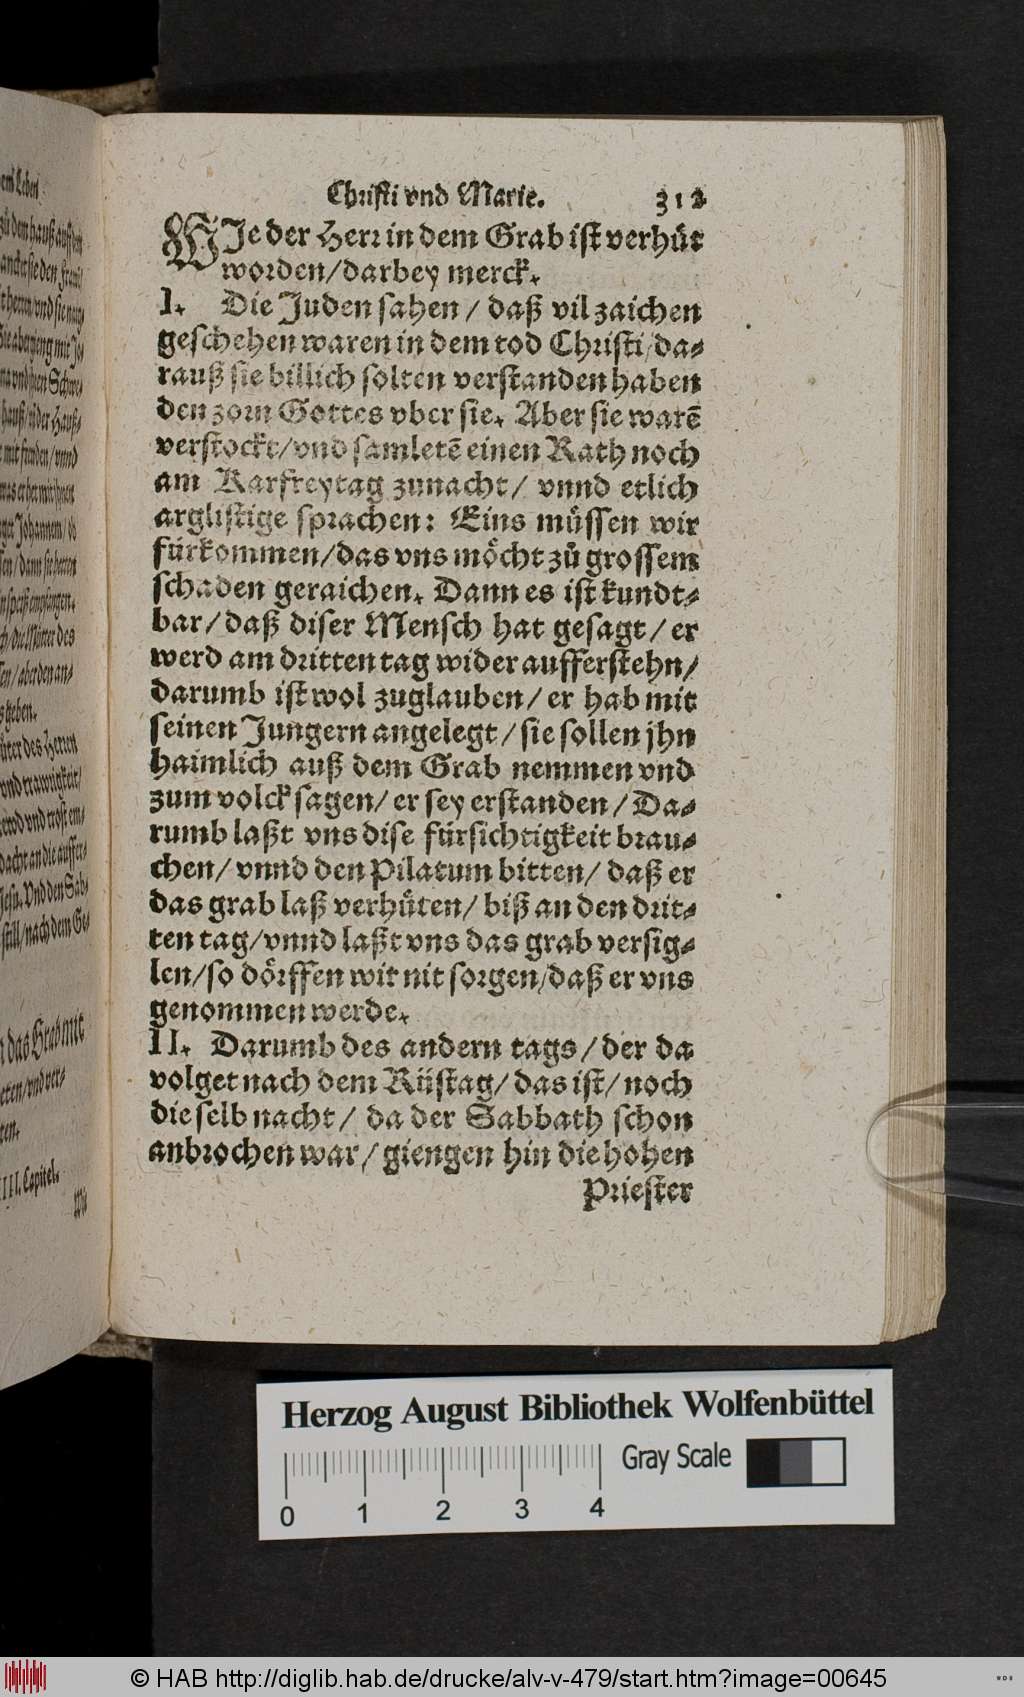 Christi vnd Marie. 312
WJe der Herr in dem Grab ist verhüt
worden/darbey merck.
I. Die Juden sahen / daß vil zaichen
geschehen waren in dem tod Christi/da-
rauß sie billich solten verstanden haben
den zorn Gottes vber sie. Aber sie warē
verstockt/vnd samletē einen Rath noch
am Karfreytag zunacht/ vnnd etlich
arglistige sprachen: Eins müssen wir
fürkommen/das vns möcht zů grossem
schaden geraichen. Dann es ist kundt-
bar/ daß diser Mensch hat gesagt/ er
werd am dritten tag wider aufferstehn/
darumb ist wol zuglauben/ er hab mit
seinen Jungern angelegt/sie sollen jhn
haimlich auß dem Grab nemmen vnd
zum volck sagen/ er sey erstanden/ Da-
rumb laßt vns dise fürsichtigkeit brau-
chen/ vnnd den Pilatum bitten/ daß er
das grab laß verhüten/ biß an den drit-
ten tag/vnnd laßt vns das grab versig-
len/so dörffen wir nit sorgen/daß er vns
genommen werde.
II. Darumb des andern tags/ der da
volget nach dem Rüstag/ das ist/ noch
die selb nacht/ da der Sabbath schon
anbrochen war/ giengen hin die hohen
Priester
em Leben
zů dem hauß auff dem
hauß/
mit finden/ vnnd
Johannem/ ob
speiß empfangen.
die Můter des
/ aber den an-
geben.
des Herren
vnd trawrigkeit/
vnd trost em-
dacht an die auffer-
Jesu. Vnd den Sab-
still/nach dem Ge-
das Grab mit
vnd ver-
ten.
III. Capitel.
Wie
Herzog August Bibliothek Wolfenbüttel
Gray Scale
0 1 2 3 4
© HAB http://diglib.hab.de/drucke/alv-v-479/start.htm?image=00645